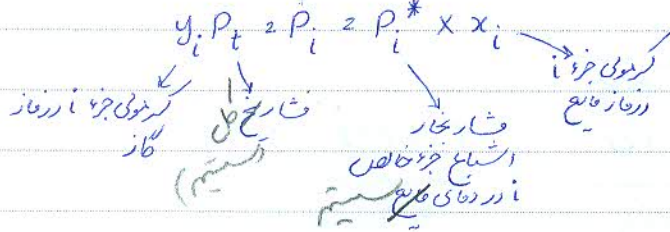 y_i P_t = P_i = P_i^* × x_i
کسرمولی جزء i
در فاز مایع
کسرمولی جزء i در فاز
گاز
فشار کل
(سیستم)
فشار بخار
اشباع جزء خالص
i در دمای سیستم